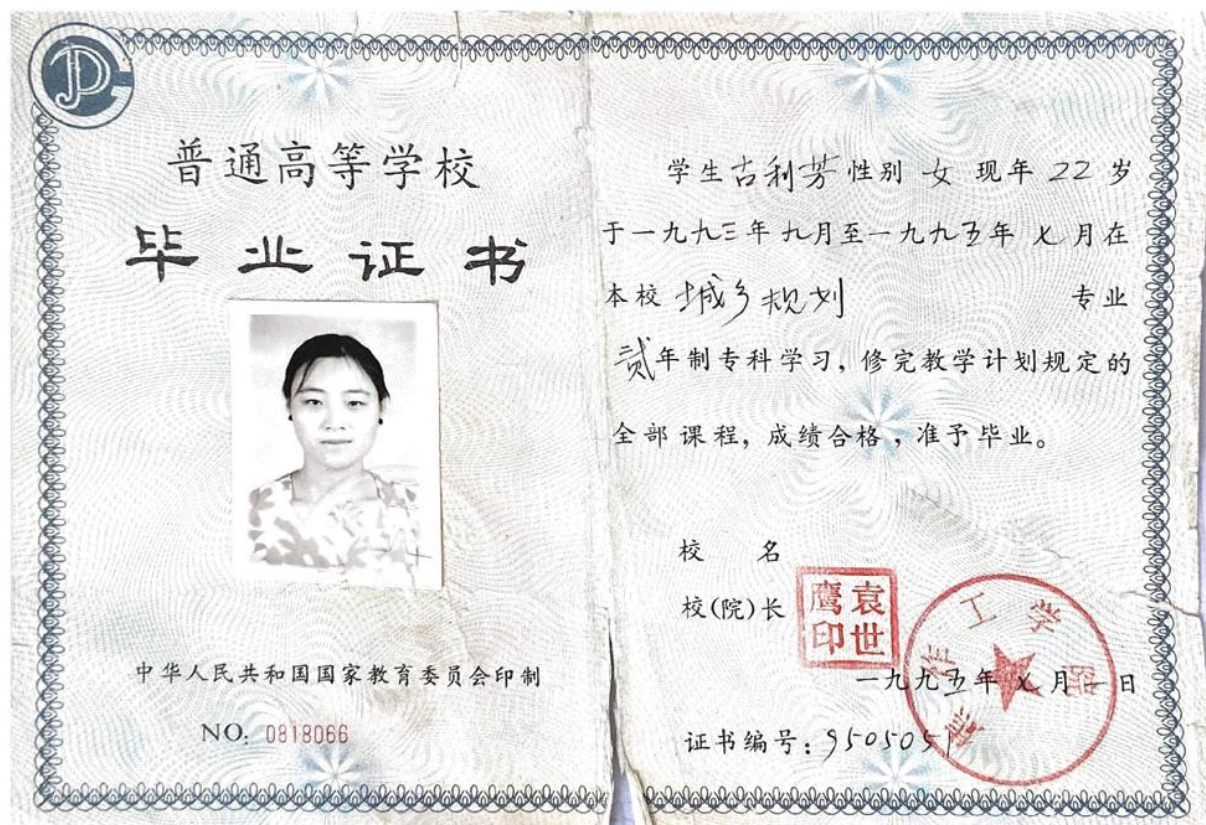 普通高等学校
毕业证书
中华人民共和国国家教育委员会印制
NO: 0818066
学生古利芳性别 女 现年 22 岁
于一九九三年九月至一九九五年 七月在
本校 城乡规划 专业
贰年制专科学习, 修完教学计划规定的
全部课程, 成绩合格, 准予毕业。
校 名
校(院)长
袁世鹰印
焦作工学院
一九九五年七月一日
证书编号: 9505051